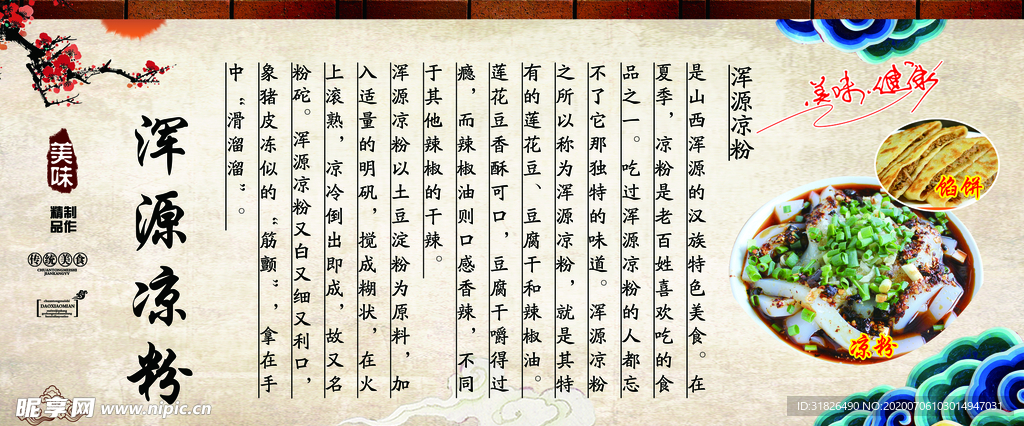 美味·健康
馅饼
凉粉
浑源凉粉
是山西浑源的汉族特色美食。在
夏季，凉粉是老百姓喜欢吃的食
品之一。吃过浑源凉粉的人都忘
不了它那独特的味道。浑源凉粉
之所以称为浑源凉粉，就是其特
有的莲花豆、豆腐干和辣椒油。
莲花豆香酥可口，豆腐干嚼得过
瘾，而辣椒油则口感香辣，不同
于其他辣椒的干辣。
浑源凉粉以土豆淀粉为原料，加
入适量的明矾，搅成糊状，在火
上滚熟，凉冷倒出即成，故又名
粉砣。浑源凉粉又白又细又利口，
象猪皮冻似的“筋颤”，拿在手
中“滑溜溜”。
浑源凉粉
美味
精品
制作
传统美食
CHUANTONGMEISHI
JIANKANGYY
DAOXIAOMIAN
昵享网 www.nipic.cn
ID:31826490 NO:20200706103014947031